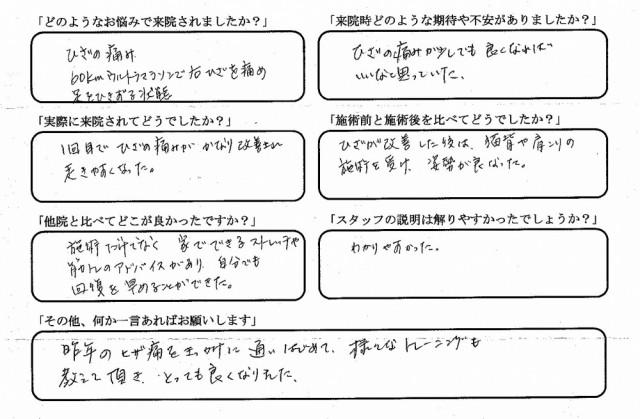 「どのようなお悩みで来院されましたか？」
ひざの痛み
60kmウルトラマラソンで右ひざを痛め
足をひきずる状態
「来院時どのような期待や不安がありましたか？」
ひざの痛みが少しでも良くなれば
いいなと思っていた。
「実際に来院されてどうでしたか？」
1回目でひざの痛みがかなり改善され
走きやすくなった。
「施術前と施術後を比べてどうでしたか？」
ひざが改善した後は、猫背や肩こりの
施術を受け、姿勢が良くなった。
「他院と比べてどこが良かったですか？」
施術だけでなく 家でできるストレッチや
筋トレのアドバイスがあり、自分でも
回復を早めることができた。
「スタッフの説明は解りやすかったでしょうか？」
わかりやすかった。
「その他、何か一言あればお願いします」
昨年のヒザ痛をきっかけに通いはじめて、様々なトレーニングも
教えて頂き、とっても良くなりました。